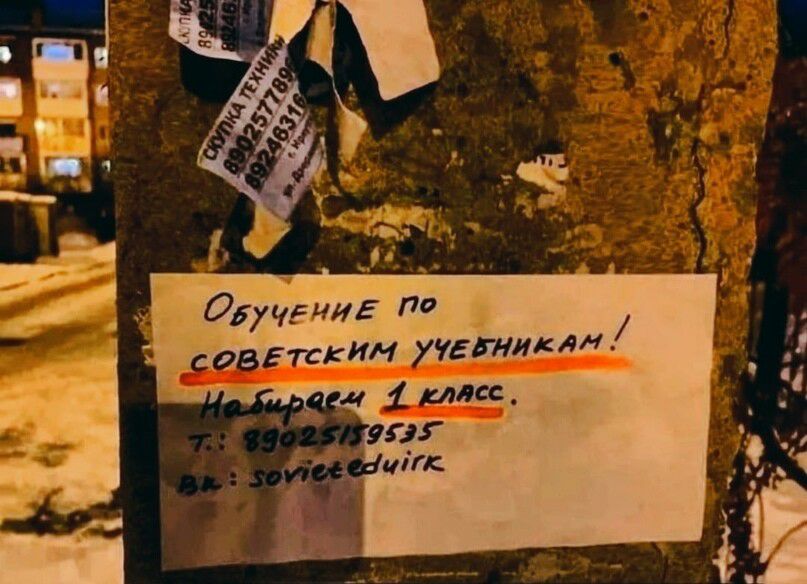 СКУПКА
89025
89246
СКУПКА ТЕХНИКИ
890257789
89246316
Обучение по
советским учебникам!
Набираем 1 класс.
т.: 89025159535
Вк: sovieteduirk